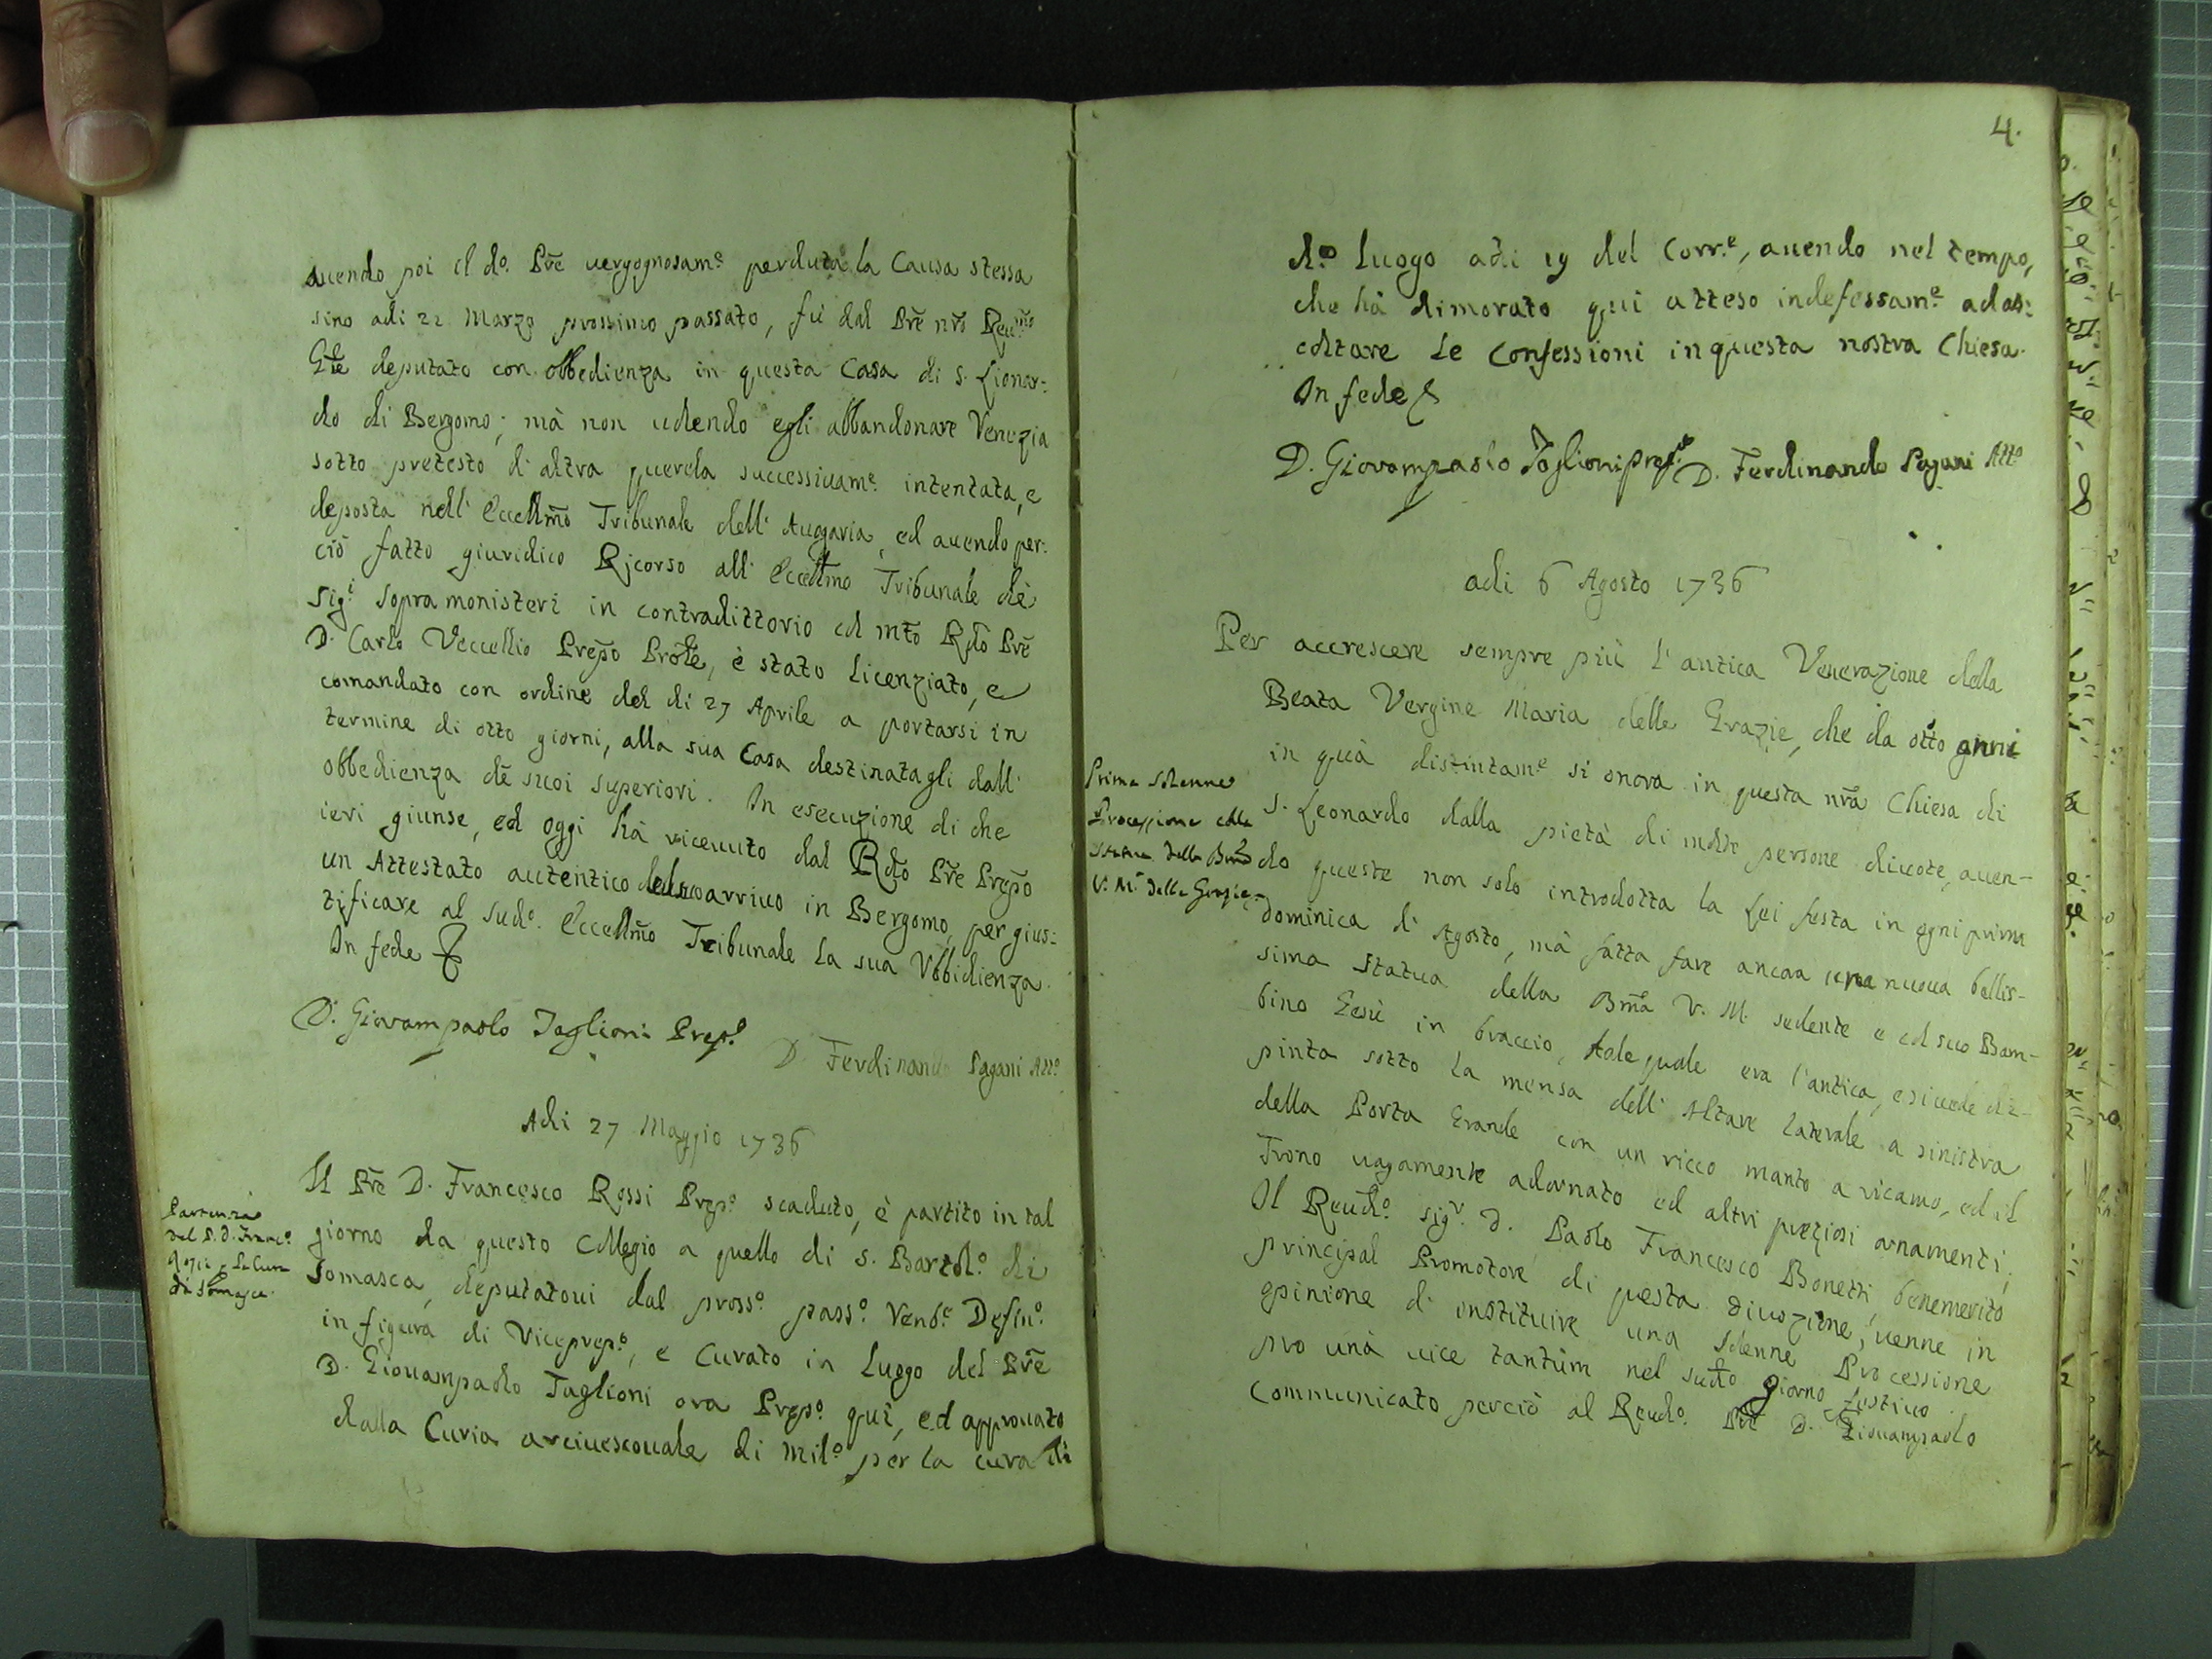 auendo poi il do. Prē uergognosame. perduta la Causa stessa
sino adi 22 Marzo prossimo passato, fù dal Prē nr̄o Reu.mo
Gle deputato con obbedienza in questa Casa di S. Lionar:
do di Bergomo; mà non uolendo egli abbandonare Venezia
sotto pretesto di altra querela successiuame. intentata, e
deposta nell' Eccellm̄o Tribunale dell' Auogaria, ed auendo per:
ciò fatto giuridico Ricorso all' Eccellm̄o Tribunale de
Sigi. Sopra monisteri in contradittorio col mto Rdo Prē
D. Carlo Veccellio Prepo Prole, è stato Licenziato, e
comandato con ordine del di 27 Aprile a portarsi in
termine di otto giorni, alla sua Casa destinatagli dall'
obbedienza de suoi superiori. In esecuzione di che
ieri giunse, ed oggi hà riceuuto dal Rdo Prē Prepo
un Attestato autentico del suo arriuo in Bergomo, per gius:
tificare al sudo. Eccellm̄o Tribunale la sua Vbbidienza.
In fede
D. Giovampaolo Taglioni Prepo.
D. Ferdinando Pagani Atto.
Adi 27 Maggio 1736
Il Prē D. Francesco Rossi Prepo. scaduto, è partito in tal
giorno da questo Collegio a quello di S. Bartolo. di
Somasca, deputatoui dal prosso. passo. Vene. Defino.
in figura di Viceprepo., e Curato in Luogo del Prē
D. Giouampaolo Taglioni ora Prepo. qui, ed approuato
dalla Curia arciuescouale di Milo. per la cura di
Partenza
del P. D. Franco.
Rossi
di Somasca.
4.
do. Luogo adi 19 del Corre., auendo nel tempo,
che hà dimorato qui atteso indefessame. ad as:
coltare le Confessioni in questa nostra Chiesa.
In fede
D. Giovampaolo Taglioni prepo. D. Ferdinando Pagani Atto
adi 6 Agosto 1736
Per accrescere sempre più l'antica Venerazione della
Beata Vergine Maria delle Grazie, che da otto anni
in quà distintame. si onora in questa nr̄a Chiesa di
S. Leonardo dalla pietà di molte persone diuote, auen-
do queste non solo introdotta la Lei festa in ogni prima
dominica d' Agosto, mà fatta fare ancora una nuoua bellis-
sima statua della Bm̄a V. M. sedente e col suo Bam-
bino Gesù in braccio, tale quale era l'antica, e si uede di-
pinta sotto la mensa dell' Altare laterale a sinistra
della Porta Grande con un ricco manto a ricamo, ed il
Trono uagamente adornato ed altri preziosi ornamenti;
Il Reudo. Sigr. D. Paolo Francesco Bonetti, benemerito
principal Promotore di questa diuozione, uenne in
opinione d' instituire una Solenne Processione
pro unà uice tantùm nel sudto giorno festiuo.
Communicato perciò al Reudo. Prē D. Giouampaolo
Prima Solenne
Processione colla
Statua della Bma
V. Ma. delle Grazie